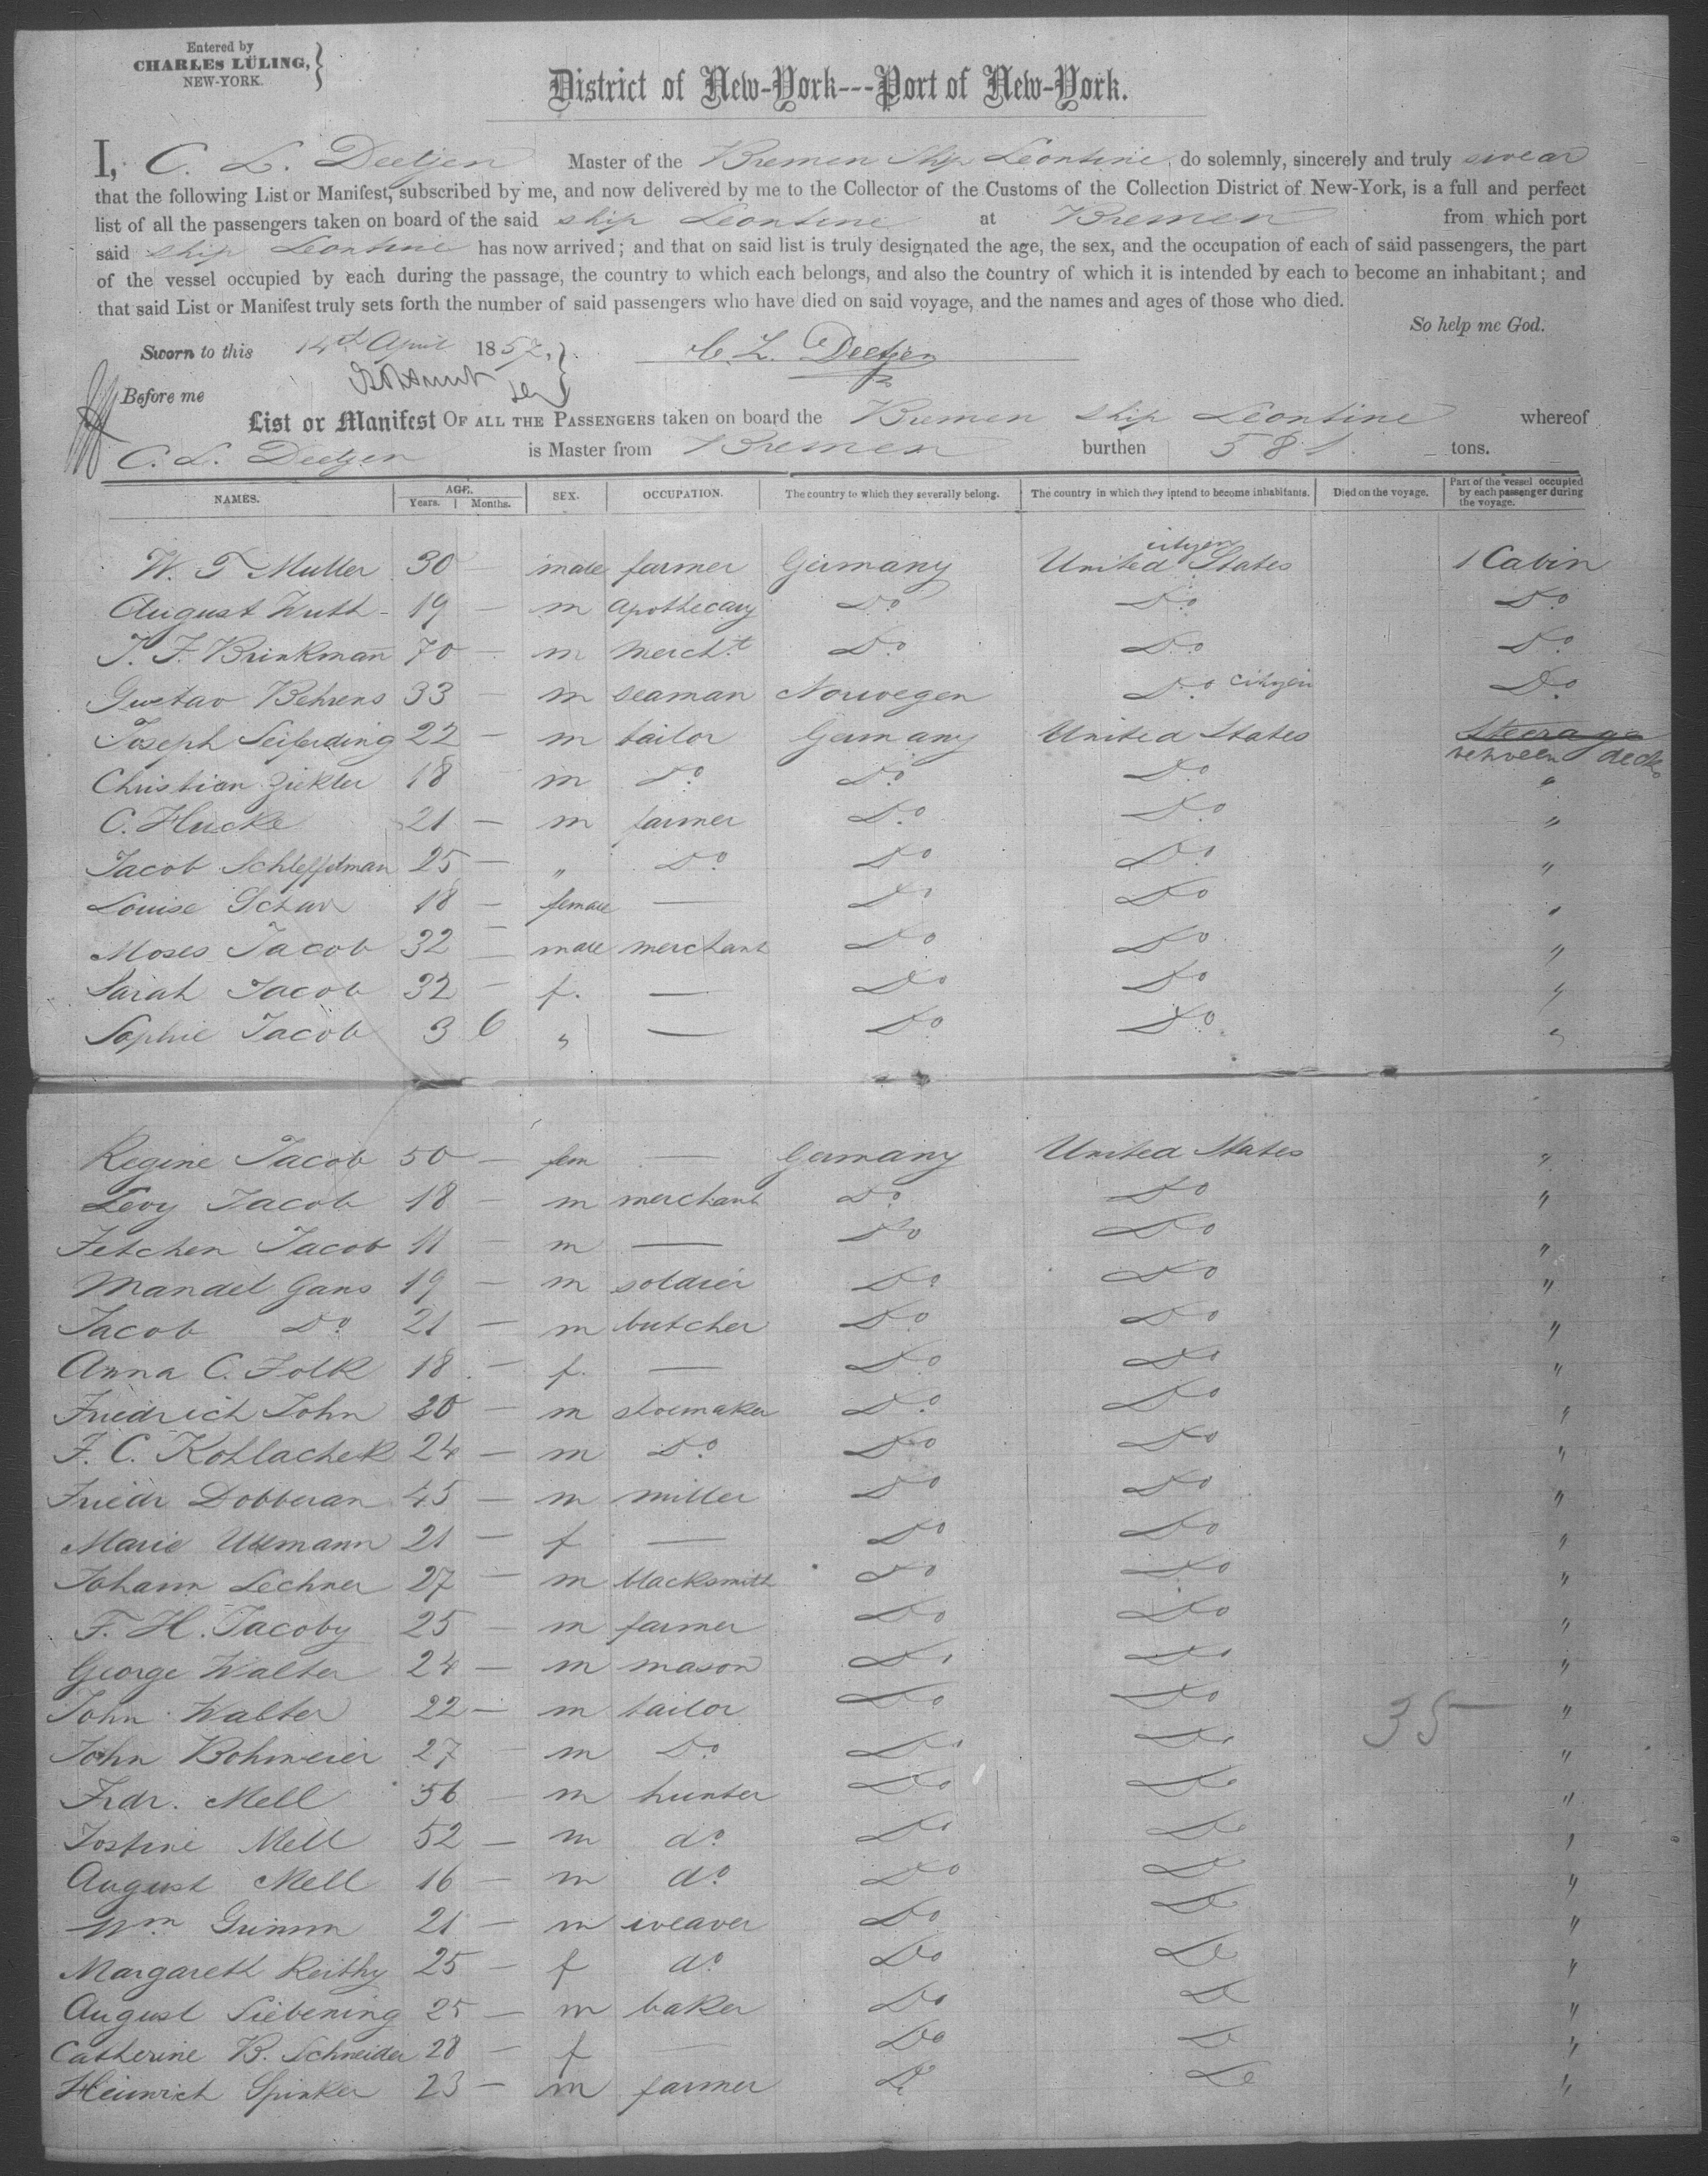 Entered by
CHARLES LÜLING,
NEW-YORK.
District of New-York---Port of New-York.
I, C. L. Deetjen Master of the Bremen Ship Leontine, do solemnly, sincerely and truly swear
that the following List or Manifest, subscribed by me, and now delivered by me to the Collector of the Customs of the Collection District of New-York, is a full and perfect
list of all the passengers taken on board of the said ship Leontine at Bremen from which port
said ship Leontine has now arrived; and that on said list is truly designated the age, the sex, and the occupation of each of said passengers, the part
of the vessel occupied by each during the passage, the country to which each belongs, and also the country of which it is intended by each to become an inhabitant; and
that said List or Manifest truly sets forth the number of said passengers who have died on said voyage, and the names and ages of those who died.
So help me God.
Sworn to this 14th April 1852, C. L. Deetjen
Before me
List or Manifest OF ALL THE PASSENGERS taken on board the Bremen ship Leontine whereof
C. L. Deetjen is Master from Bremen burthen 581 tons.
NAMES. AGE. Years. Months. SEX. OCCUPATION. The country to which they severally belong. The country in which they intend to become inhabitants. Died on the voyage. Part of the vessel occupied by each passenger during the voyage.
W. T Muller 30 — male farmer Germany United citizen States 1 Cabin
August Wuth - 19 — m apothecary Do Do Do
J. F. Brinkman 70 — m Mercht Do Do Do
Gustav Behrens 33 — m seaman Norwegen Do citizen Do
Joseph Seiferding 22 — m tailor Germany United States Steerage between decks
Christian 18 m Do Do Do "
C. Hucke 21 — m farmer Do Do "
Jacob 25 — " Do Do Do "
Louise 18 — female — Do Do "
Moses Jacob 32 — male merchant Do Do "
Sarah Jacob 32 — f. — Do Do "
Sophie Jacob 3 6 " — Do Do "
Regine Jacob 50 — fem — Germany United States "
Levy Jacob 18 — m merchant Do Do "
Jetchen Jacob 11 — m — Do Do "
Mandel Gans 19 — m soldier Do Do "
Jacob Do 21 — m butcher Do Do "
Anna C. Folk 18 — f. — Do Do "
Friedrich John 30 — m shoemaker Do Do "
F. C. Kohlachek 24 — m Do Do Do "
Friedr Dobberan 45 — m miller Do Do "
Marie Ullmann 21 — f — Do Do "
Johann Lechner 27 — m blacksmith Do Do "
F. H. Jacoby 25 — m farmer Do Do "
George Walter 24 — m mason Do Do "
John Walter 22 — m tailor Do Do 35 — "
John Bohmeier 27 — m Do Do Do "
Frdr. Mell 56 — m hunter Do Do "
Jostine Mell 52 — m do Do Do "
August Mell 16 — m do Do Do "
Wm Grimm 21 — m weaver Do Do "
Margareth Reithy 25 — f do Do Do "
August Siebening 25 — m baker Do Do "
Catherine B. Schneider 28 — f — Do Do "
Heinrich Spinker 23 — m farmer Do Do "